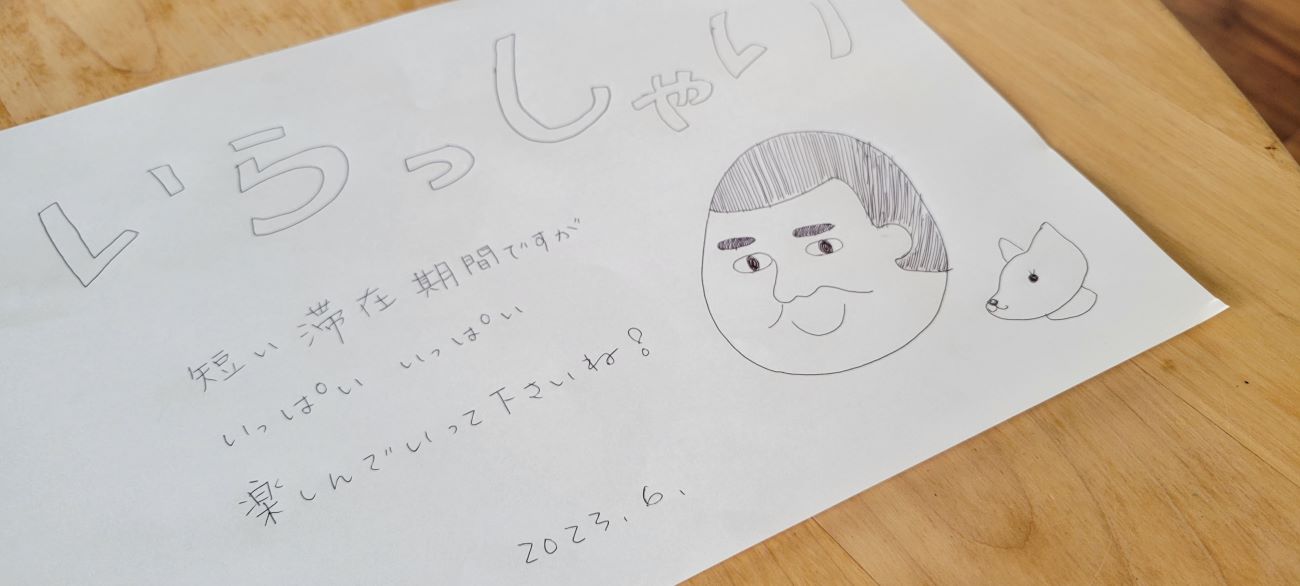 いらっしゃい
短い滞在期間ですが
いっぱい いっぱい
楽しんでいって下さいね!
2023.6.